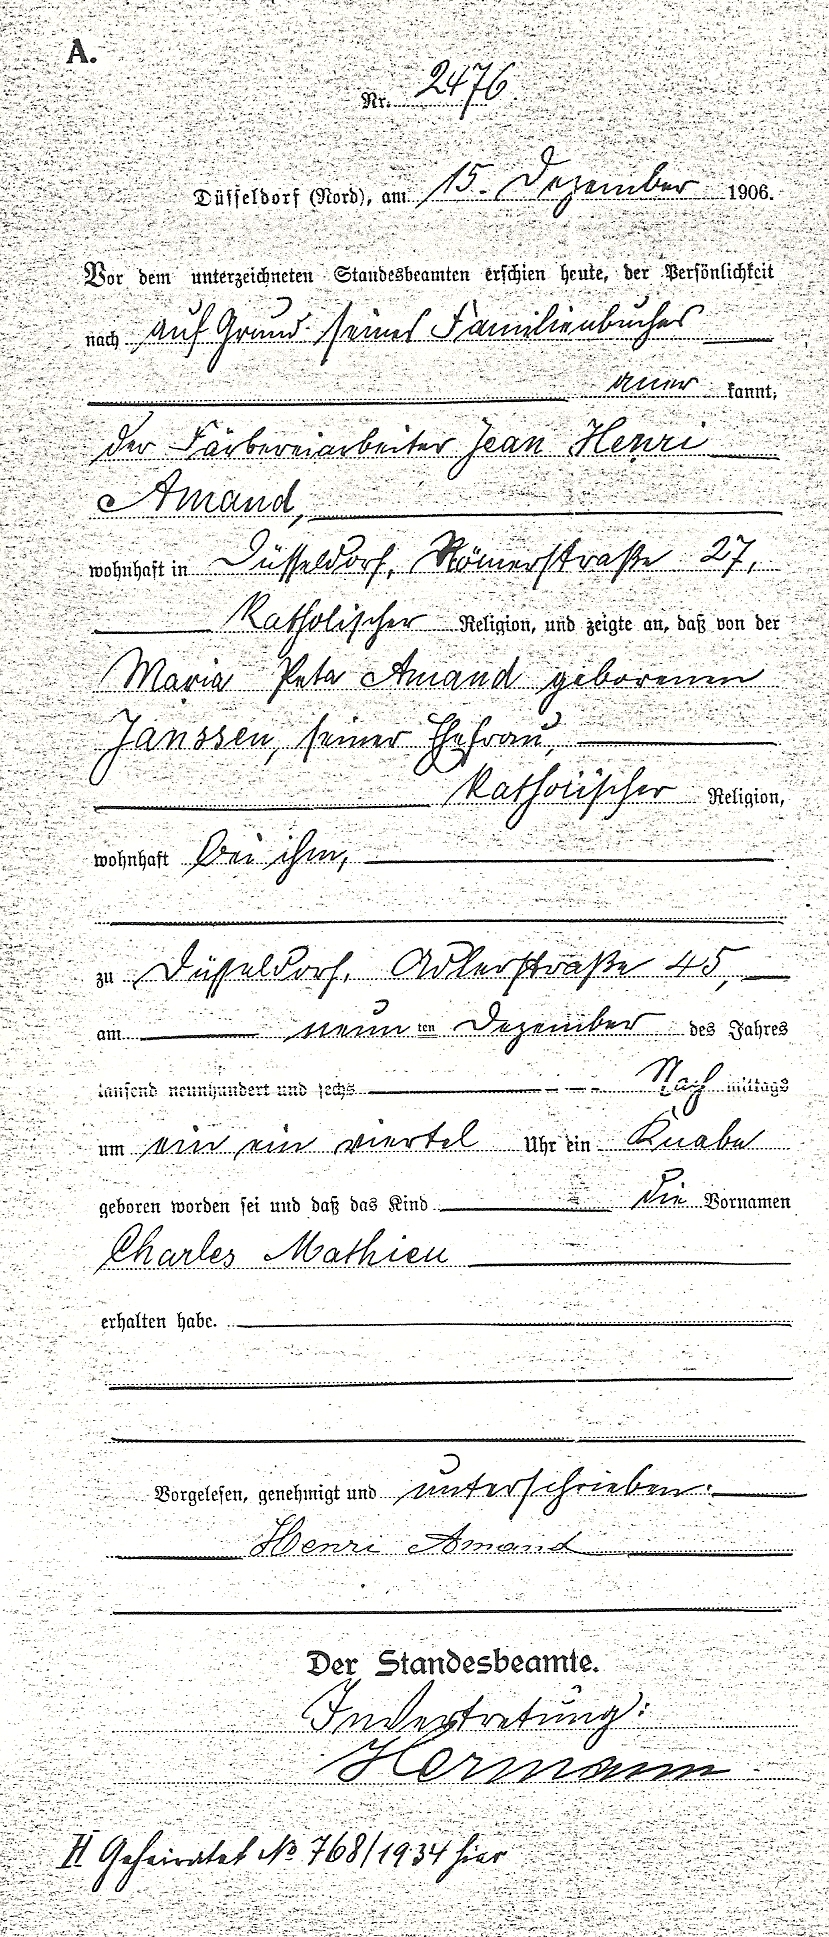 A.
Nr. 2476.
Düsseldorf (Nord), am 15. Dezember 1906.
Vor dem unterzeichneten Standesbeamten erschien heute, der Persönlichkeit
nach auf Grund seines Familienbuches
aner kannt,
der Färbereiarbeiter Jean Henri
Amand,
wohnhaft in Düsseldorf, Römerstraße 27,
katholischer Religion, und zeigte an, daß von der
Maria Peta Amand geborenen
Janssen, seiner Ehefrau,
katholischer Religion,
wohnhaft bei ihm,
zu Düsseldorf, Adlerstraße 45,
am neun ten Dezember des Jahres
tausend neunhundert und sechs Nach mittags
um ein ein viertel Uhr ein Knabe
geboren worden sei und daß das Kind die Vornamen
Charles Mathieu
erhalten habe.
Vorgelesen, genehmigt und unterschrieben.
Henri Amand
Der Standesbeamte.
In Vertretung:
Hermann
H Geheiratet No 768/1934 hier